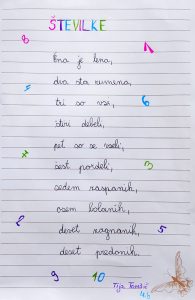 ŠTEVILKE
8
1
Ena je lena,
dva sta rumena,
4
tri so vas,
6
štiri debeli,
pet so se vzeli,
7
šest pordeli,
3
sedem zaspanih,
osem bolanih,
2
devet nagnanih,
5
deset predanih.
9
10
Tija
4.b